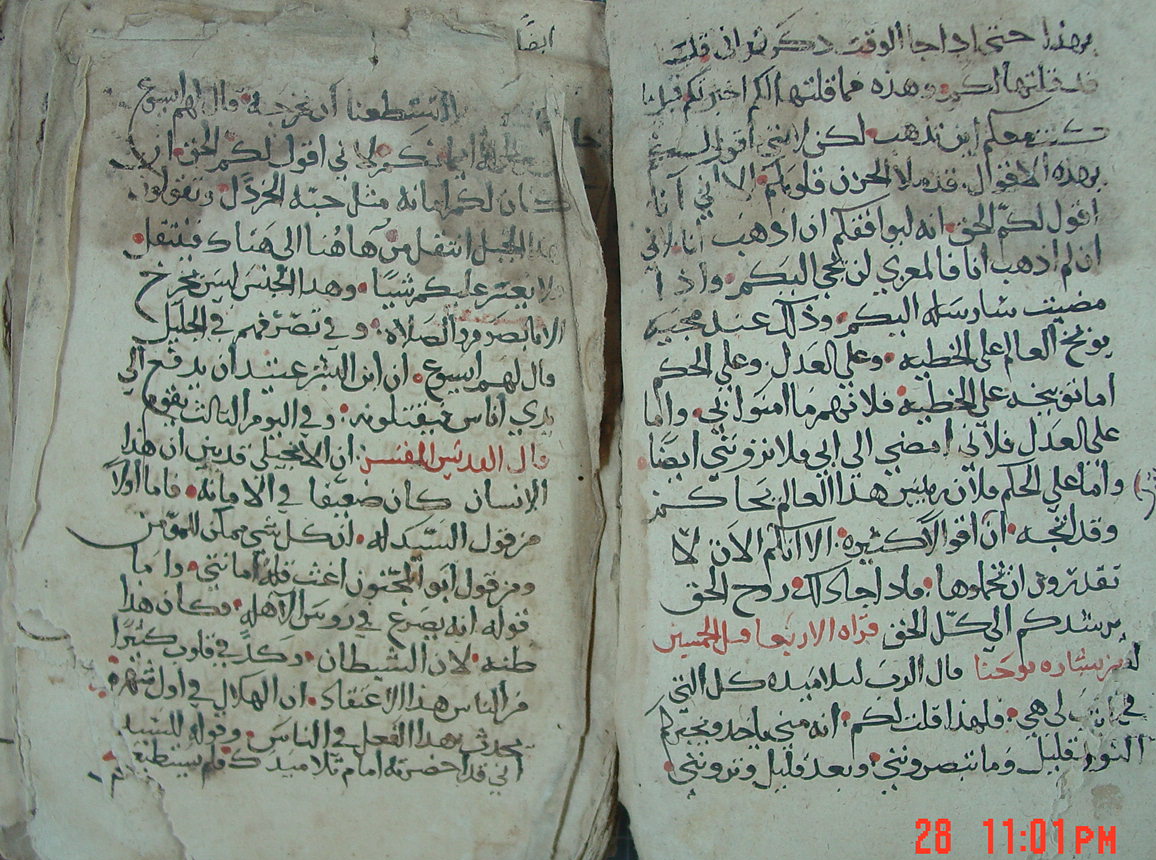 بهذا حتى اذا جا الوقت ذكرتم اني قلت
قد قلتها لكم وهذه مما قلتها لكم اخبرتكم قبل
كنت معكم اين تذهب لكن لانني اقول لكم
بهذه الاقوال قد ملا الحزن قلوبكم الا اني انا
اقول لكم الحق انه ليوافقكم ان اذهب انا لاني
ان لم اذهب انا فالمعزي لن يجي اليكم واذا
مضيت سارسله اليكم وذلك عند مجييه
يوبخ العالم على الخطيه وعلى العدل وعلى الحكم
اما توبيخه على الخطيه فلانهم ما امنوا بي واما
على العدل فلاني امضي الى ابي فلا تروني ايضا
واما على الحكم فلان رييس هذا العالم يحاكم
وقد اتجه ان اقوالا كثيره الا انكم الان لا
تقدرون ان تحملوها فاذا جا ذاك روح الحق
يرشدكم الي كل الحق قراه الاربعا قبل الخمسين
من بشاره يوحنا قال الرب لتلاميذه كل التي
في لي هي فلهذا قلت لكم انه مني ياخذ ويخبركم
قليل وما تبصروني وبعد قليل وتروني
ايضا
استطعنا ان نخرجه قال لهم ايسوع
ايمانكم لاني اقول لكم الحق ان
كان لكم امانه مثل حبة الخردل وتقولوا
هذا الجبل انتقل من هاهنا الى هناك فينتقل
ولا يعتر عليكم شيا وهذا الجنس ليس يخرج
الا بالصوم والصلاه وفي تصرفهم في الجليل
قال لهم ايسوع ان ابن البشر عتيد ان يدفع الي
يدي اناس فيقتلونه وفي اليوم الثالث يقوم
قال القديس المفسر ان الانجيلي قد بين ان هذا
الانسان كان ضعيفا في الامانه فاما اولا
من قول السيد له ان كل شي ممكن للمؤمن
ومن قول ابو المجنون اغث قله امانتي واما
قوله انه يصرع في روس الاهله فكان هذا
ظنه لان الشيطان وكد في قلوب كثيرا
من الناس هذا الاعتقاد ان الهلال في اول شهره
يحدث هذا الفعل في الناس وقوله للسيد
اني قد احضرته امام تلاميذك فلم يستطيعوا